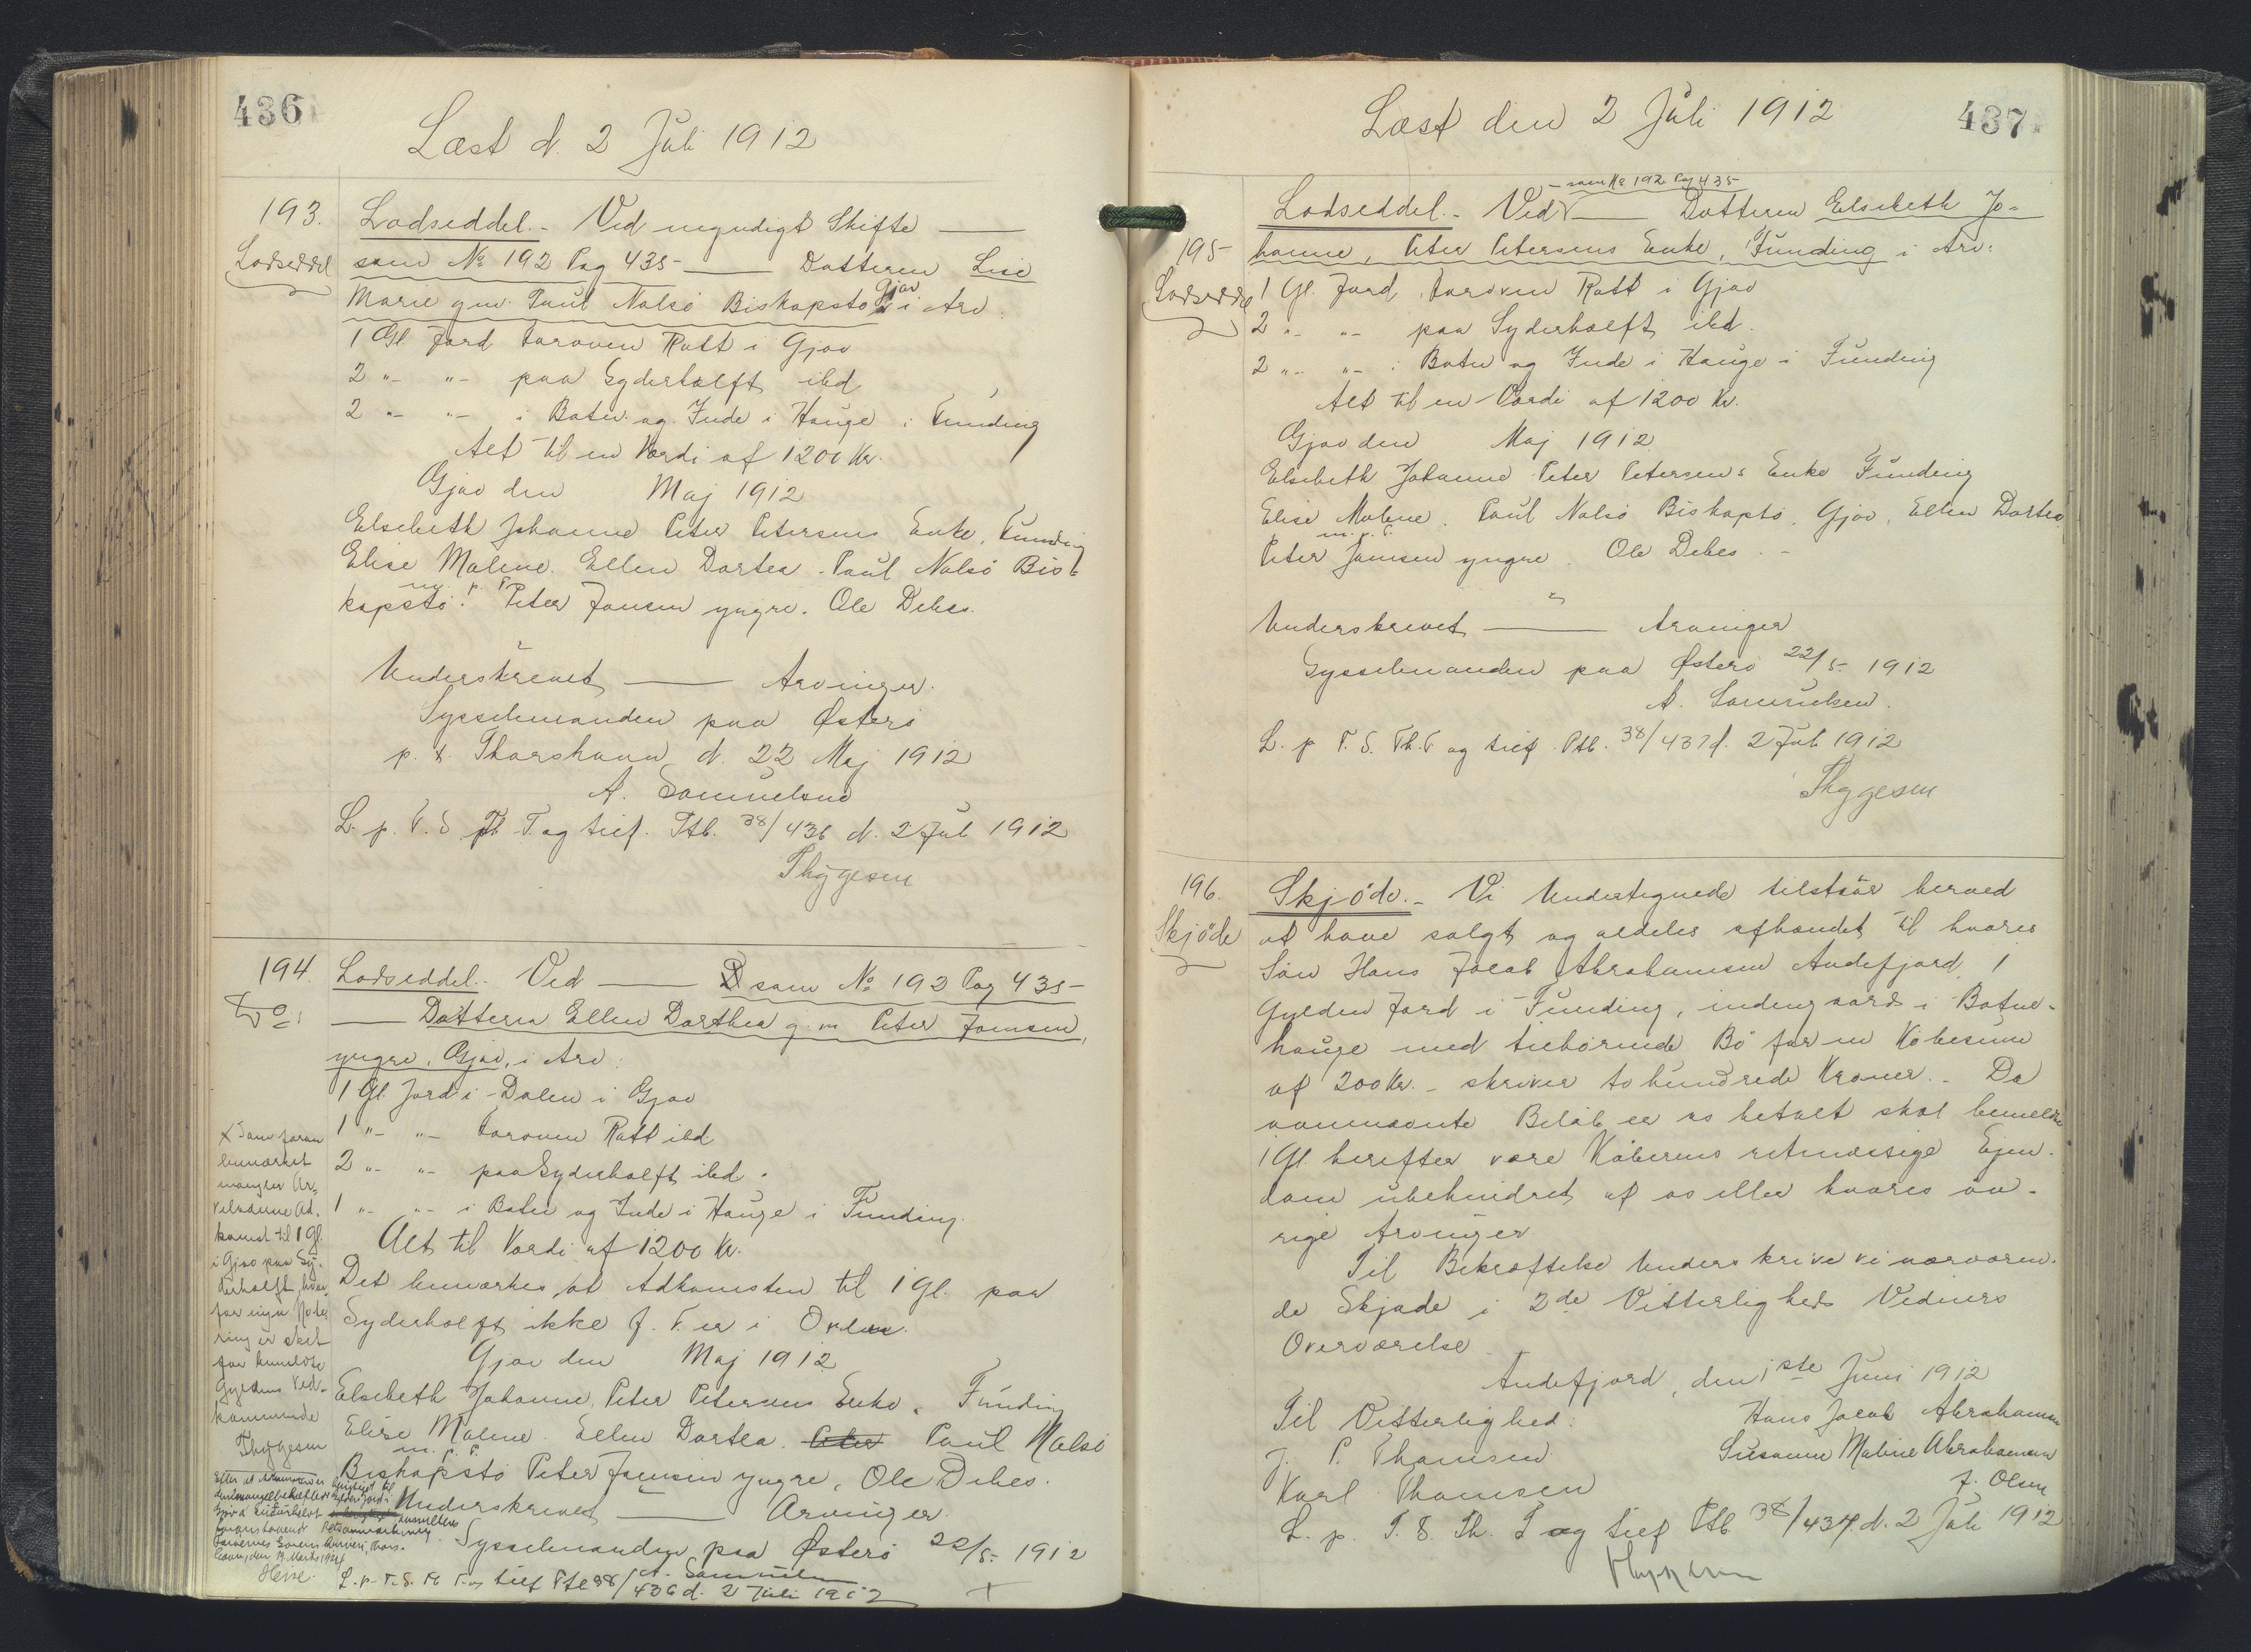 436
Læst d. 2 Juli 1912
193.
Lodseddel
Lodseddel.- Ved myndigt Skifte —
som No 192 Pag 435- — Datteren Lise
Marie g.m. Paul Nolsö Biskopstö Gjov i Arv:
1 Gl. Jord foroven Ratt i Gjov
2 "- "- paa Syderhalft ibd
2 "- "- i Boten og Inde i Hauge i Funding
Alt til en Værdi af 1200 Kr.
Gjov den Maj 1912
Elsebeth Johanne Peter Petersens Enke, Funding
Elise Malene. Ellen Dortea. Paul Nolsö Bis-
kopstö. m. p. P. Peter Joensen yngre. Ole Debes.
Underskrevet — Arvinger.
Sysselmanden paa Østerö
p. t. Thorshavn d. 22 Maj 1912
A. Samuelsen
L. p. F. S. Th. T. og tilf. Ptb. 38/436 d. 2 Juli 1912
Thygesen
194.
Do:
Lodseddel.- Ved — som No 192 Pag 435-
— Datteren Ellen Dorthea g.m. Peter Joensen,
yngre, Gjov, i Arv:
1 Gl. Jord i Dalen i Gjov
1 "- "- foroven Ratt ibd
2 "- "- paa Syderhalft ibd.
1 "- "- i Boten og Inde i Hauge i Funding.
Alt til Værdi af 1200 Kr.
Det bemærkes, at Adkomsten til 1 gl. paa
Syderhalft ikke f. T. er i Orden.
Gjov den Maj 1912
Elsebeth Johanne, Peter Petersens Enke, Funding
Elise Malene. Ellen Dortea. Peter Paul Nolsö
Biskopstö m. p. P. Peter Joensen yngre, Ole Debes.
Underskrevet — Arvinger.
Sysselmanden paa Østerö 22/5- 1912
A. Samuelsen
L. p. F. S. Th. T. og tilf Ptb 38/436 d. 2 Juli 1912
x Som foran
bemærket
mangler Ar-
veladerne Ad-
komst til 1 Gl.
i Gjov paa Sy-
derhalft, hvor-
for ingen Note-
ring er sket
for bemeldte
Gyldens Ved-
kommende
Thygesen
Hesse.
437
Læst den 2 Juli 1912
195
Lodseddel
Lodseddel.- Ved — som No 192 Pag 435- — Datteren Elsebeth Jo-
hanne, Peter Petersens Enke, Funding i Arv:
1 Gl. Jord foroven Ratt i Gjov
2 "- "- paa Syderhalft ibd.
2 "- "- i Boten og Inde i Hauge i Funding
Alt til en Værdi af 1200 Kr.
Gjov den Maj 1912
Elsebeth Johanne Peter Petersens Enke Funding
Elise Malene. Paul Nolsö Biskopstö, Gjov, Ellen Dortea
m. p. P. Peter Joensen yngre. Ole Debes. -
Underskrevet — Arvinger
Sysselmanden paa Østerö 22/5- 1912
A. Samuelsen.
L. p F. S. Th. T og tilf. Ptb. 38/437 d. 2 Juli 1912
Thygesen
196.
Skjöde
Skjöde.- Vi Undertegnede tilstaar herved
at have solgt og aldeles afhændet til hvores
Sön Hans Jacob Abrahamsen Andefjord, 1
Gylden Jord i Funding, indengaards i Botne-
hauge med tilhörende Bö for en Köbesum
af 200 Kr. - skriver to hundrede Kroner. - Da
ovennævnte Belöb er os betalt skal bemeldte
1 Gl. herefter være Köberens retmæssige Ejen-
dom ubehindret af os eller hvores öv-
rige Arvinger
Til Bekræftelse Underskrive vi nærværen-
de Skjøde i 2de Vitterligheds Vidners
Overværelse
Andefjord, den 1ste Juni 1912
Til Vitterlighed:
J. P. Thomsen
Karl Thomsen
Hans Jacob Abrahamsen
Susanne Maline Abrahamsen
f. Olsen
L. p. T. S. Th. T og tilf Ptb 38/437. d. 2 Juli 1912
Thygesen